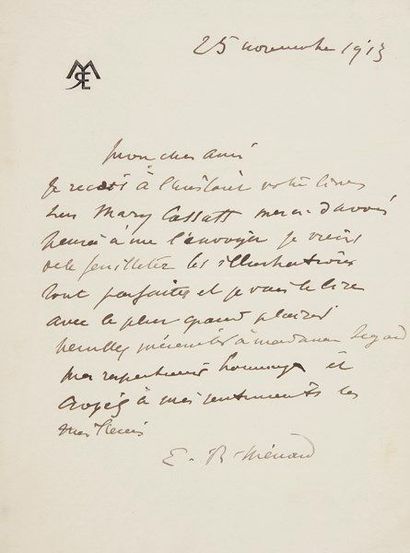 25 novembre 1913
Mon cher ami
Je reçois à l'instant votre livre
sur Mary Cassatt merci d'avoir
pensé à me l'envoyer je viens
de le feuilleter les illustrations
sont parfaites et je vais le lire
avec le plus grand plaisir
veuillez présenter à madame Segard
mes respectueux hommages et
croyez à mes sentiments les
meilleurs
E. R. Ménard